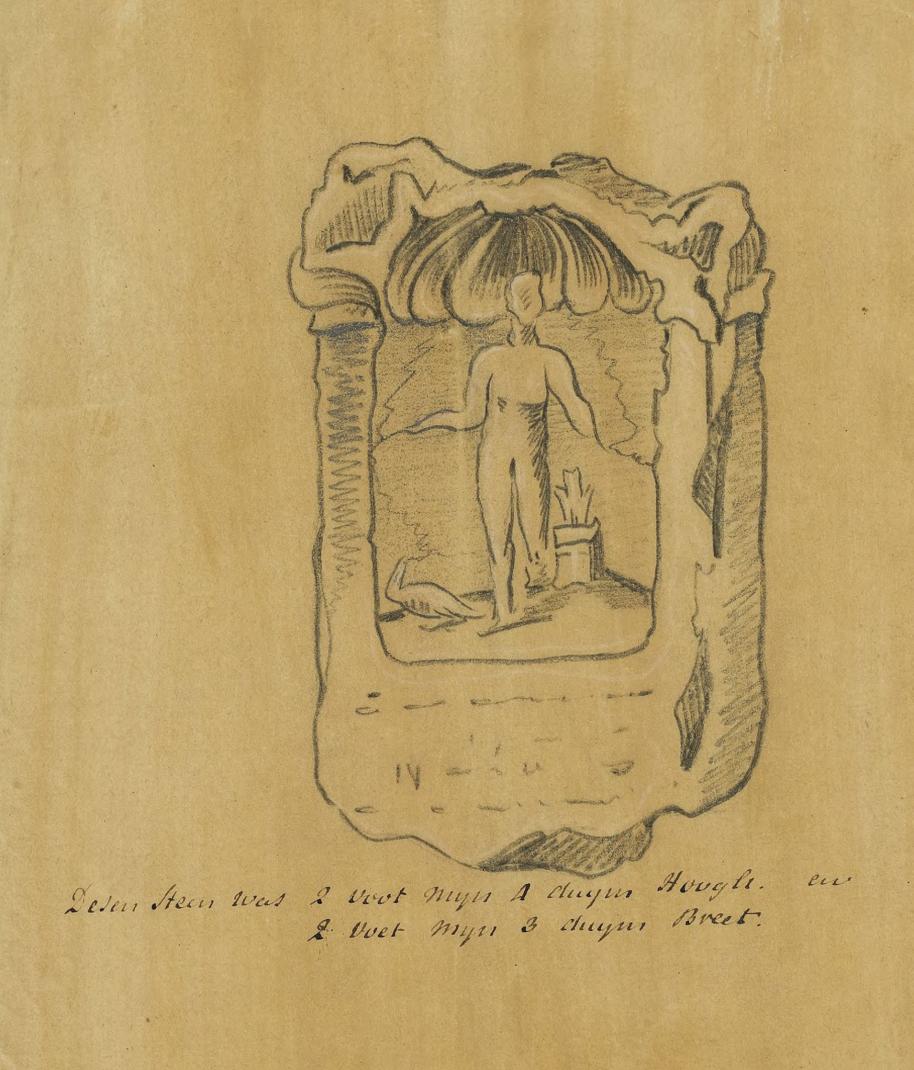 Desen Steen was 2 voot myn 4 duym Hoogh. en
2 voet myn 3 duym Breet.